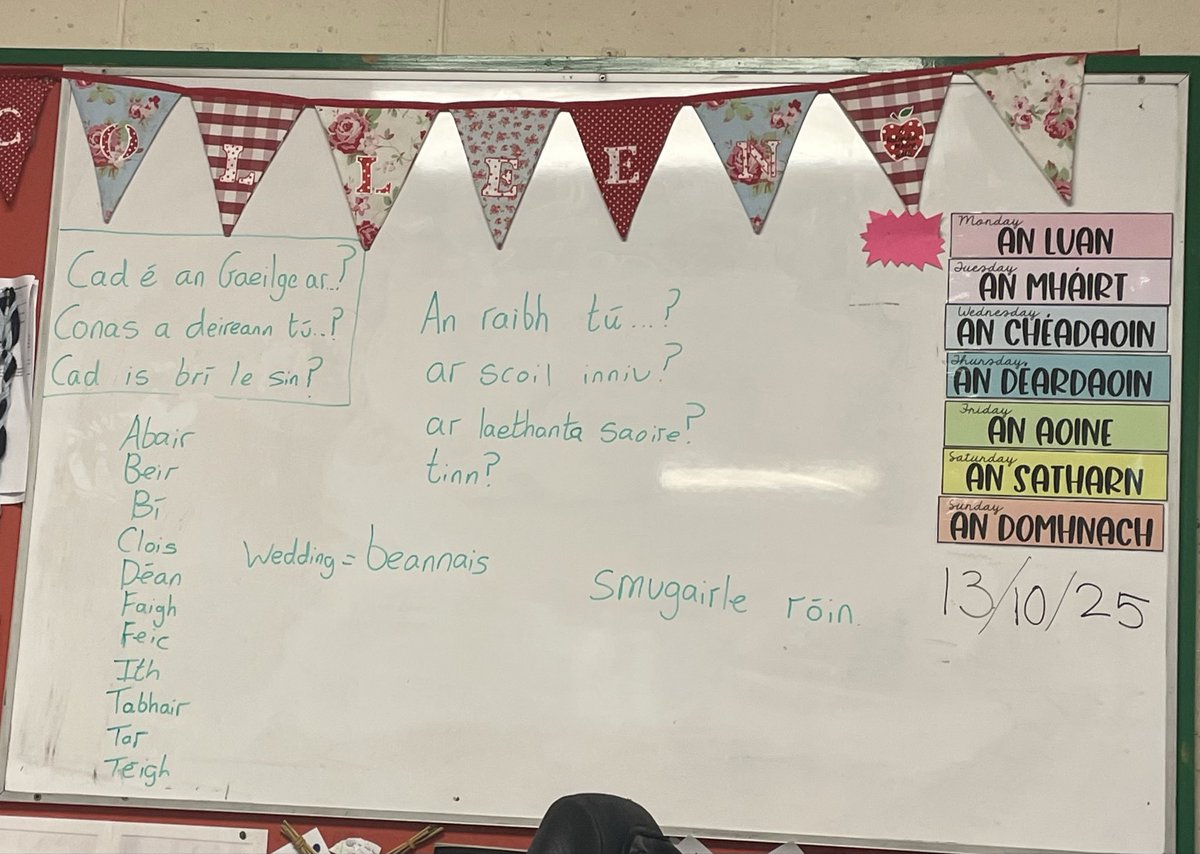 C O L L E E N
Cad é an Gaeilge ar..?
Conas a deireann tú..?
Cad is brí le sin?
Abair
Beir
Bí
Clois
Déan
Faigh
Feic
Ith
Tabhair
Tar
Téigh
An raibh tú...?
ar scoil inniu?
ar laethanta saoire?
tinn?
Wedding = beannais
Smugairle róin
Monday
AN LUAN
Tuesday
AN MHÁIRT
Wednesday
AN CHÉADAOIN
Thursday
AN DÉARDAOIN
Friday
AN AOINE
Saturday
AN SATHARN
Sunday
AN DOMHNACH
13/10/25